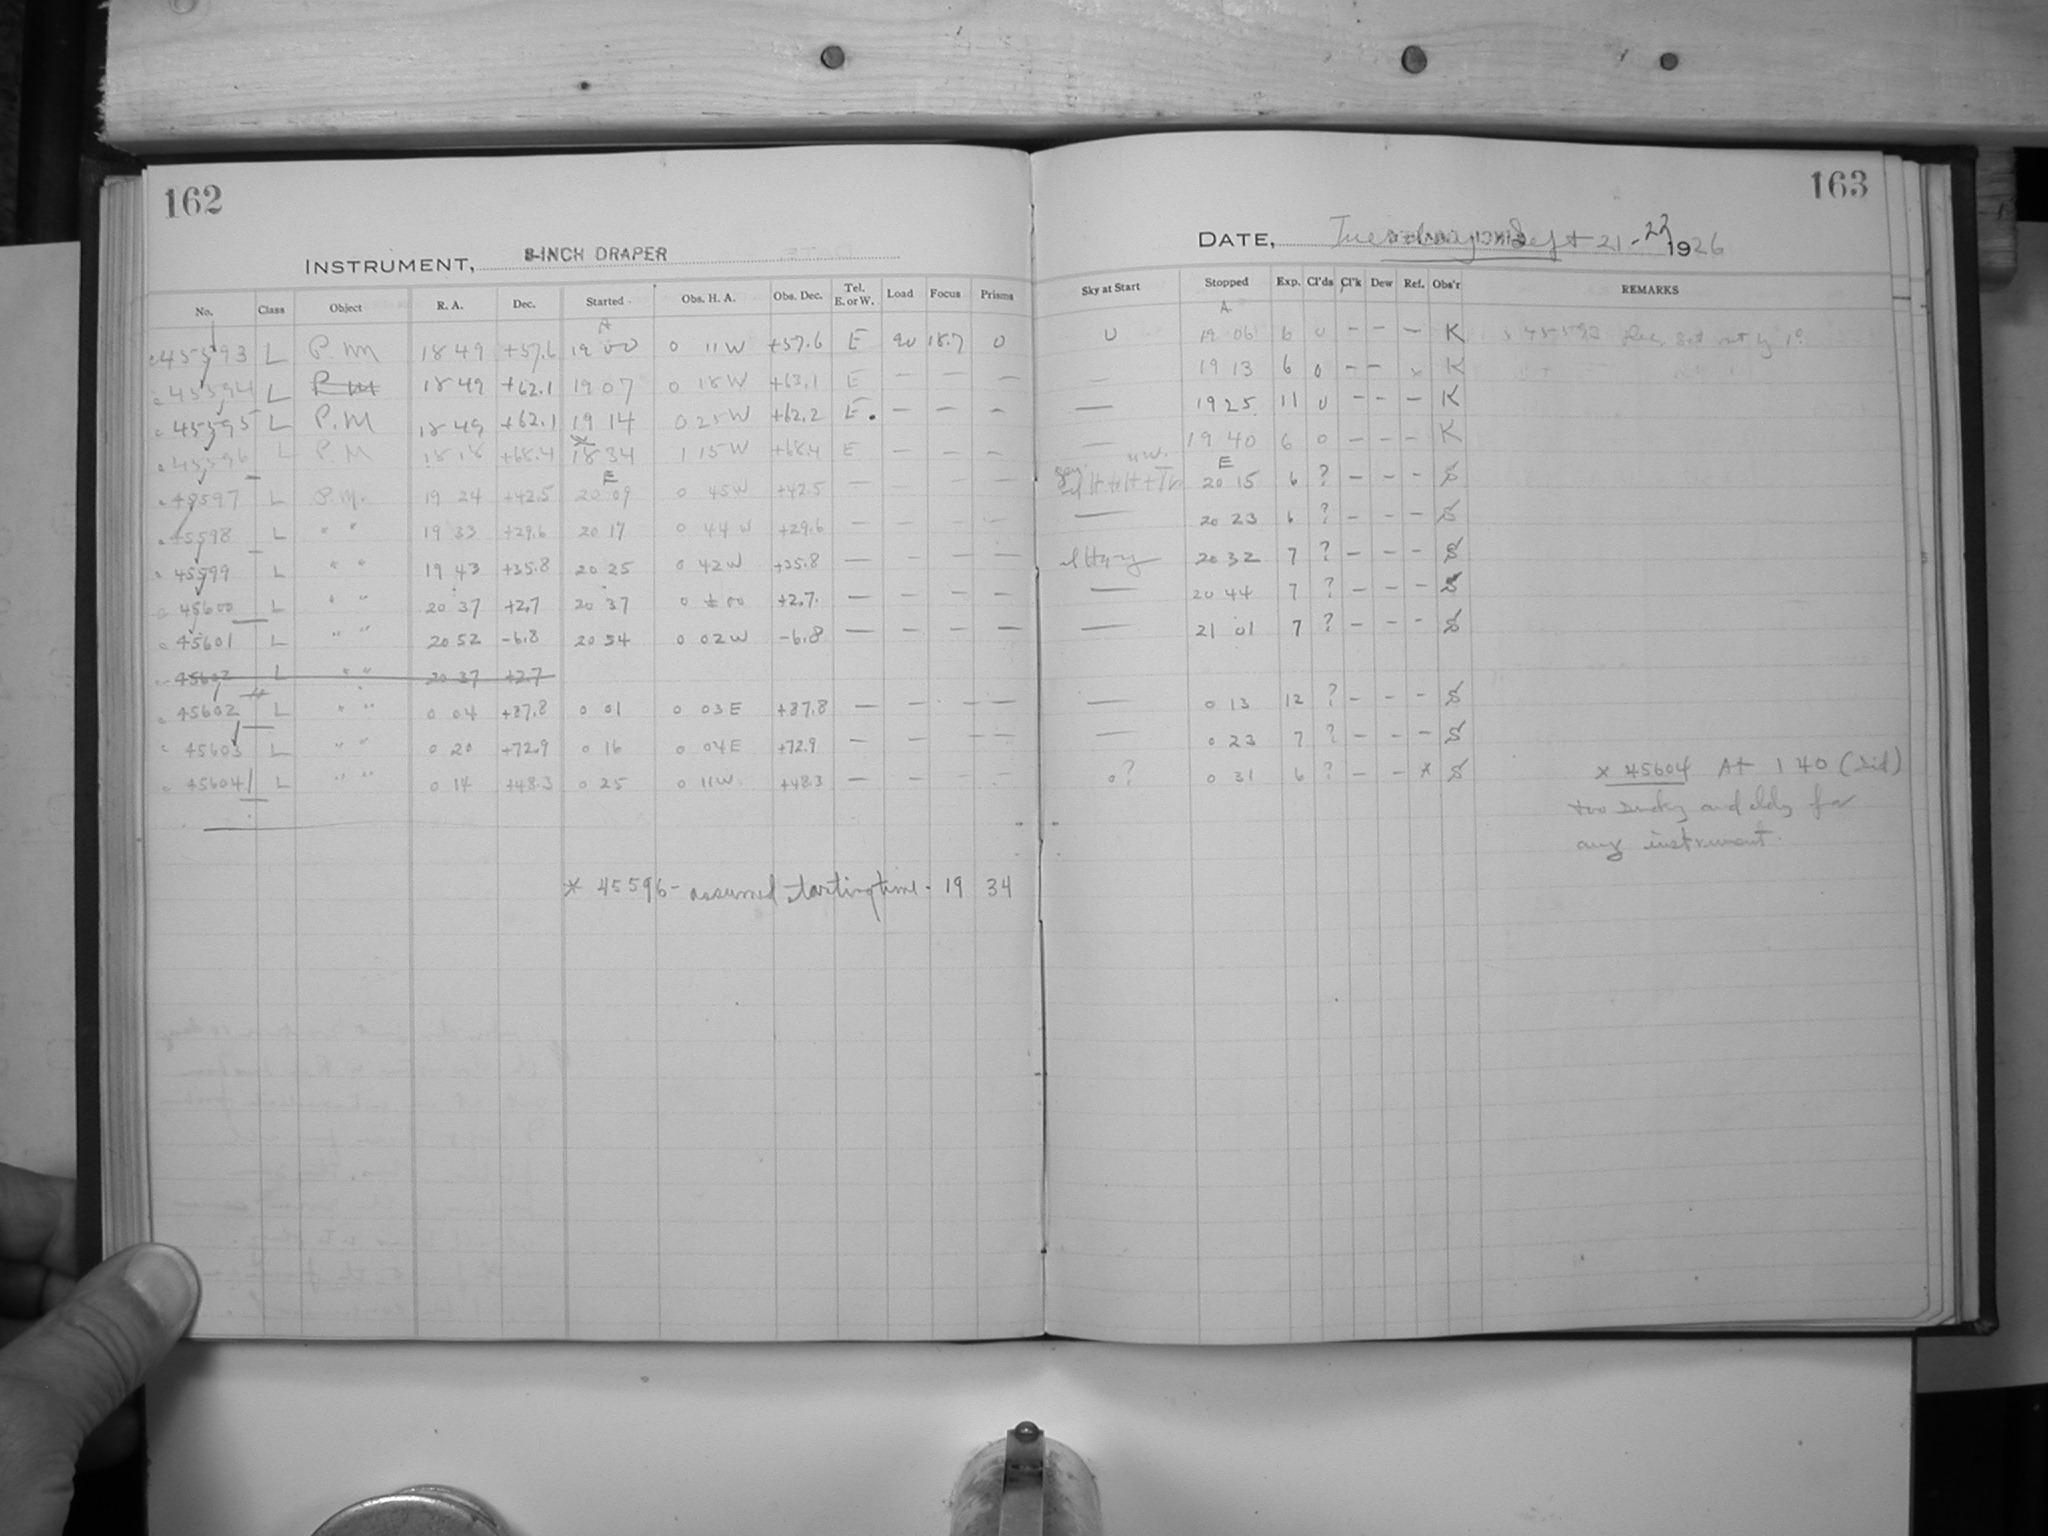 162
INSTRUMENT, 8-INCH DRAPER
No. Class Object R. A. Dec. Started Obs. H. A. Obs. Dec. Tel. E. or W. Load Focus Prisms
A
45593 L P.M 18 49 +57.6 19 00 0 11 W +57.6 E 90 18.7 0
45594 L P M 18 49 +62.1 19 07 0 18 W +63.1 E — — —
45595 L P.M 18 49 +62.1 19 14 0 25 W +62.2 E. — — —
45596 L P M 18 18 +68.4 18 34 1 15 W +68.4 E — — —
E
45597 L P.M. 19 24 +42.5 20 09 0 45 W +42.5 — — — —
45598 L " " 19 33 +29.6 20 17 0 44 W +29.6 — — — —
45599 L " " 19 43 +35.8 20 25 0 42 W +35.8 — — — —
45600 L " " 20 37 +2.7 20 37 0 ± 00 +2.7. — — — —
45601 L " " 20 52 -6.8 20 54 0 02 W -6.8 — — — —
45602 L " " 20 37 +2.7
45602 L " " 0 04 +37.8 0 01 0 03 E +37.8 — — — —
45603 L " " 0 20 +72.9 0 16 0 04 E +72.9 — — — —
45604 L " " 0 14 +48.3 0 25 0 11 W. +48.3 — — — —
* 45596 - assumed starting time - 19 34
163
DATE, Tuesday Sept 21-22 1926
Sky at Start Stopped Exp. Cl'ds Cl'k Dew Ref. Obs'r REMARKS
A
0 19 06 6 0 — — — K 45593 Dec. set out by 1°
— 19 13 6 0 — — x K
— 19 25 11 0 — — — K
— 19 40 6 0 — — — K
E
20 15 6 ? — — — S
— 20 23 6 ? — — — S
sl Hazy 20 32 7 ? — — — S
— 20 44 7 ? — — — S
— 21 01 7 ? — — — S
— 0 13 12 ? — — — S
— 0 23 7 ? — — — S
0? 0 31 6 ? — — * S
x 45604 At 1 40 (sid)
too and cldy for
any instrument.